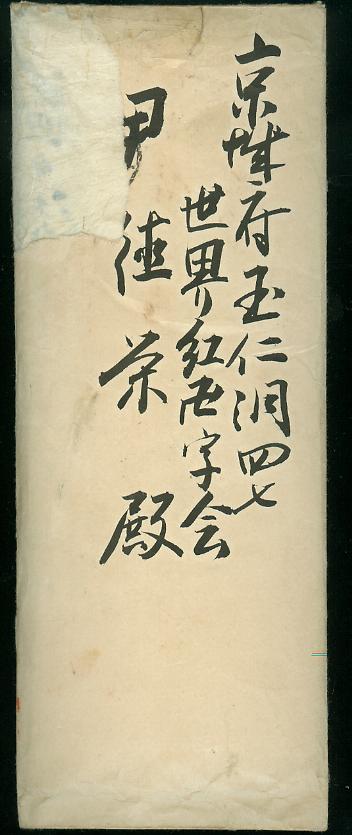 京城府玉仁洞四七
世界紅卍字会
尹徳栄殿